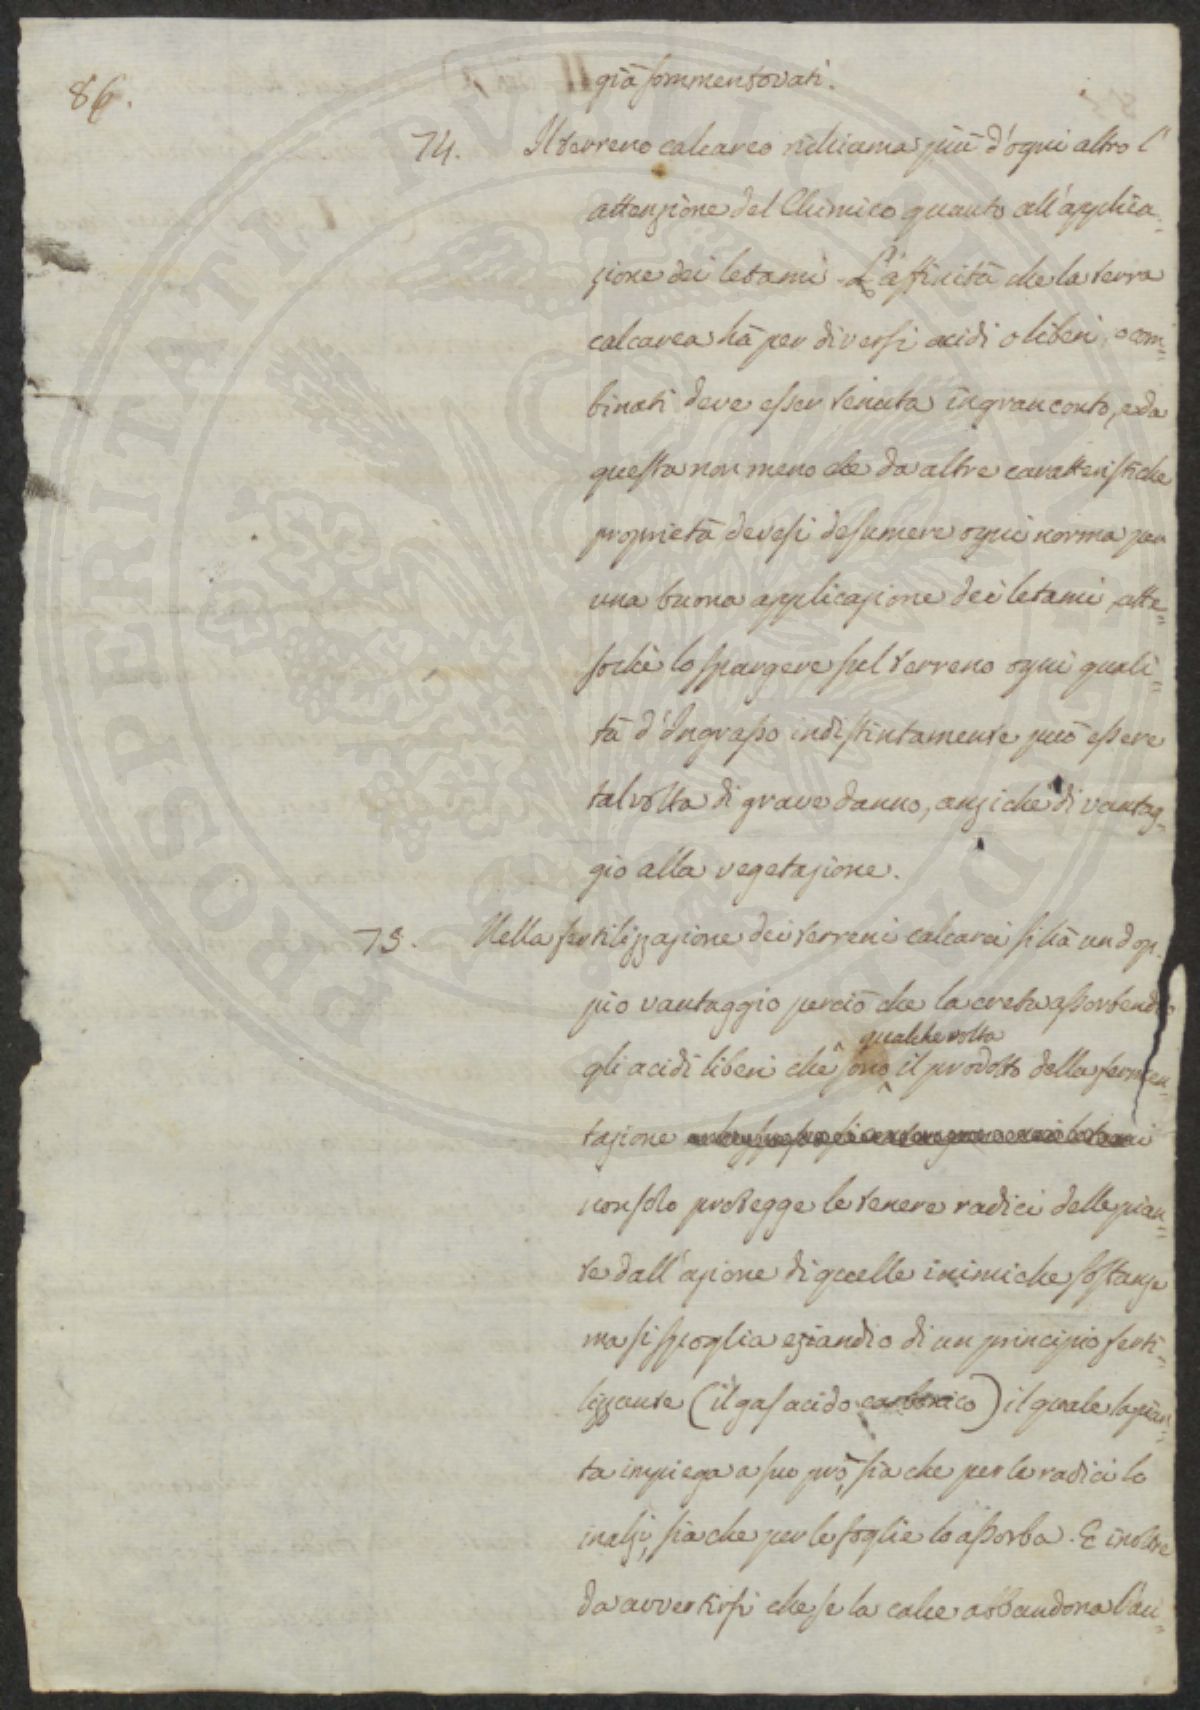 86.
già sommentovati.
74. Il terreno calcareo richiama più d'ogni altro l'
attenzione del Chimico quanto all'applica=
zione dei letami. L'affinità che la terra
calcarea hà per diversi acidi o liberi, o com=
binati deve esser tenuta in gran conto, e da
questa non meno che da altre caratteristiche
proprietà devesi desumere ogni norma per
una buona applicazione dei letami, atte=
sochè lo spargere sul terreno ogni quali=
tà d'Ingrasso indistintamente può essere
talvolta di grave danno, anziché di vantag=
gio alla vegetazione.
75. Nella fertilizzazione dei terreni calcarei si hà un dop=
pio vantaggio perciò che la creta assorbendo
qualche volta
gli acidi liberi che sono il prodotto della fermen=
tazione
non solo protegge le tenere radici delle pian=
te dall'azione di quelle inimiche sostanze
ma si spoglia eziandio di un principio ferti=
lizzante (il gas acido carbonico) il quale la pian=
ta impiega a suo prò, sia che per le radici lo
inalzi, sia che per le foglie lo assorba. E inoltre
da avvertirsi che se la calce abbandona l'aci=
PROSPERITATI PVBLICAE